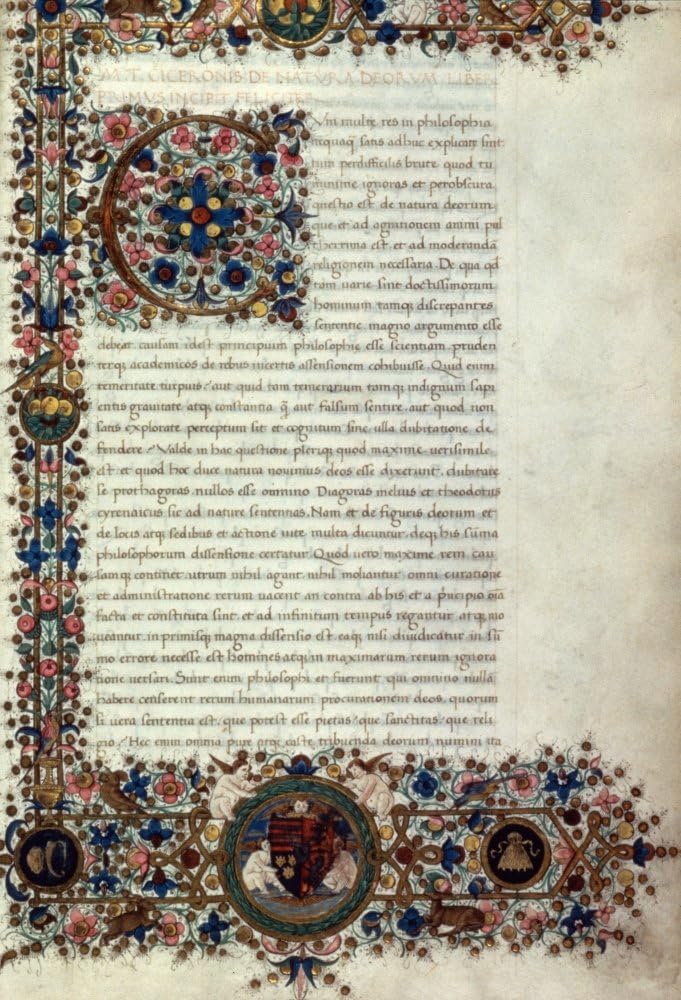 M. T. CICERONIS DE NATVRA DEORVM LIBER
PRIMVS INCIPIT FELICITER
CVm multe res in philosophia
nequaq̃ satis adhuc explicate sint
tum perdifficilis brute quod tu
minime ignoras et perobscura
questio est de natura deorum
que et ad agnitionem animi pul
cherrima est et ad moderandã
religionem necessaria. De qua qd
tam varie sint doctissimorum
hominum tamq; discrepantes
sententie magno argumento esse
debeat causam idest principium philosophie esse scientiam pruden
terq; academicos de rebus incertis assensionem cohibuisse. Quid enim
temeritate turpius? aut quid tam temerarium tamq; indignum sapi
entis grauitate atq; constantia q̃ aut falsum sentire aut quod non
satis explorate perceptum sit et cognitum sine ulla dubitatione de
fendere? Valde in hac questione pleriq; quod maxime uerisimile
est et quod hoc duce natura nouimus deos esse dixerunt. dubitate
se prothagoras. nullos esse omnino Diagoras melius et theodotus
cyrenaicus sic ad nature sententias. Nam et de figuris deorum et
de locis atq; sedibus et actione uite multa dicuntur. deq; his sũma
philosophorum dissensione certatur. Quod uero maxime rem cau
samq; continet utrum nihil agant nihil moliantur omni curatione
et administratione rerum uacent an contra ab his et a p̃ncipio oĩa
facta et constituta sint et ad infinitum tempus regantur atq; mo
ueantur. in primisq; magna dissensio est eaq; nisi diiudicatur in sũ
mo errore necesse est homines atq; in maximarum rerum ignora
tione uersari. Sunt enim philosophi et fuerunt qui omnino nullã
habere censerent rerum humanarum procurationem deos. quorum
si uera sententia est. que potest esse pietas? que sanctitas? que reli
gio? Hec enim omnia pure atq; caste tribuenda deorum numini ita